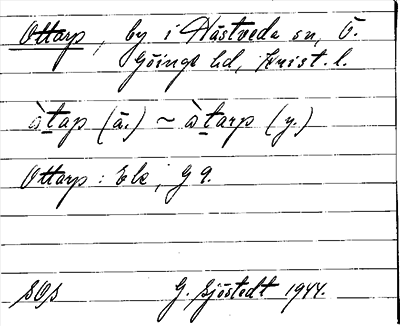 Ottarp, by i Hästveda sn, Ö.
Göinge hd, Krist. l.
àtap (ä.) ~ àtarp (y.)
Ottarp: Ek, G 9.
SOS G. Sjöstedt 1944.